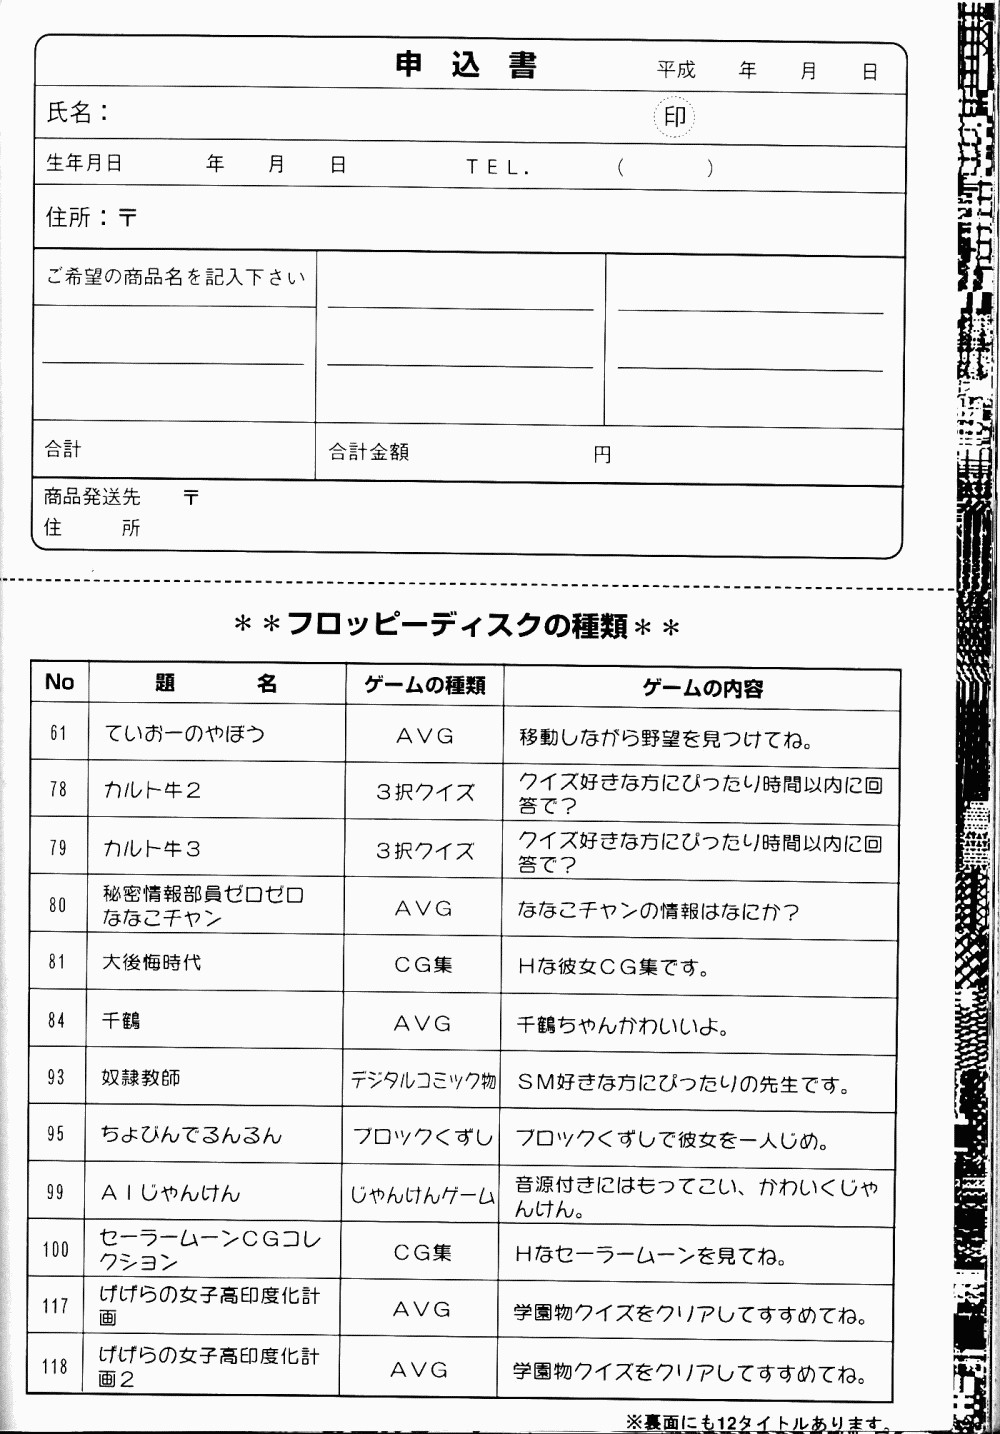 申込書 平成 年 月 日
氏名： 印
生年月日 年 月 日 ＴＥＬ． （ ）
住所：〒
ご希望の商品名を記入下さい
合計 合計金額 円
商品発送先 〒
住 所
＊＊フロッピーディスクの種類＊＊
No 題 名 ゲームの種類 ゲームの内容
61 ていおーのやぼう ＡＶＧ 移動しながら野望を見つけてね。
78 カルト牛２ ３択クイズ クイズ好きな方にぴったり時間以内に回
答で？
79 カルト牛３ ３択クイズ クイズ好きな方にぴったり時間以内に回
答で？
80 秘密情報部員ゼロゼロ
ななこチャン ＡＶＧ ななこチャンの情報はなにか？
81 大後悔時代 ＣＧ集 Ｈな彼女ＣＧ集です。
84 千鶴 ＡＶＧ 千鶴ちゃんかわいいよ。
93 奴隷教師 デジタルコミック物 ＳＭ好きな方にぴったりの先生です。
95 ちょびんでるんるん ブロックくずし ブロックくずしで彼女を一人じめ。
99 ＡＩじゃんけん じゃんけんゲーム 音源付きにはもってこい、かわいくじゃ
んけん。
100 セーラームーンＣＧコレ
クション ＣＧ集 Ｈなセーラームーンを見てね。
117 げげらの女子高印度化計
画 ＡＶＧ 学園物クイズをクリアしてすすめてね。
118 げげらの女子高印度化計
画２ ＡＶＧ 学園物クイズをクリアしてすすめてね。
※裏面にも12タイトルあります。